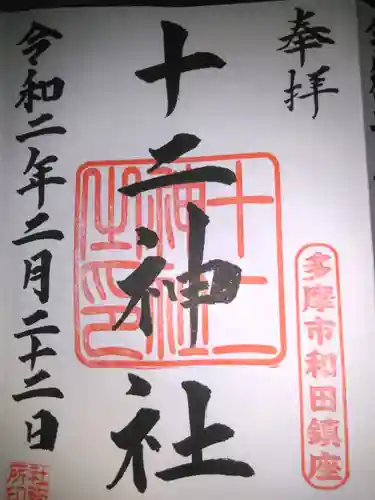 奉拝
多摩市和田鎮座
十二神社
十二神社之印
令和二年二月二十二日